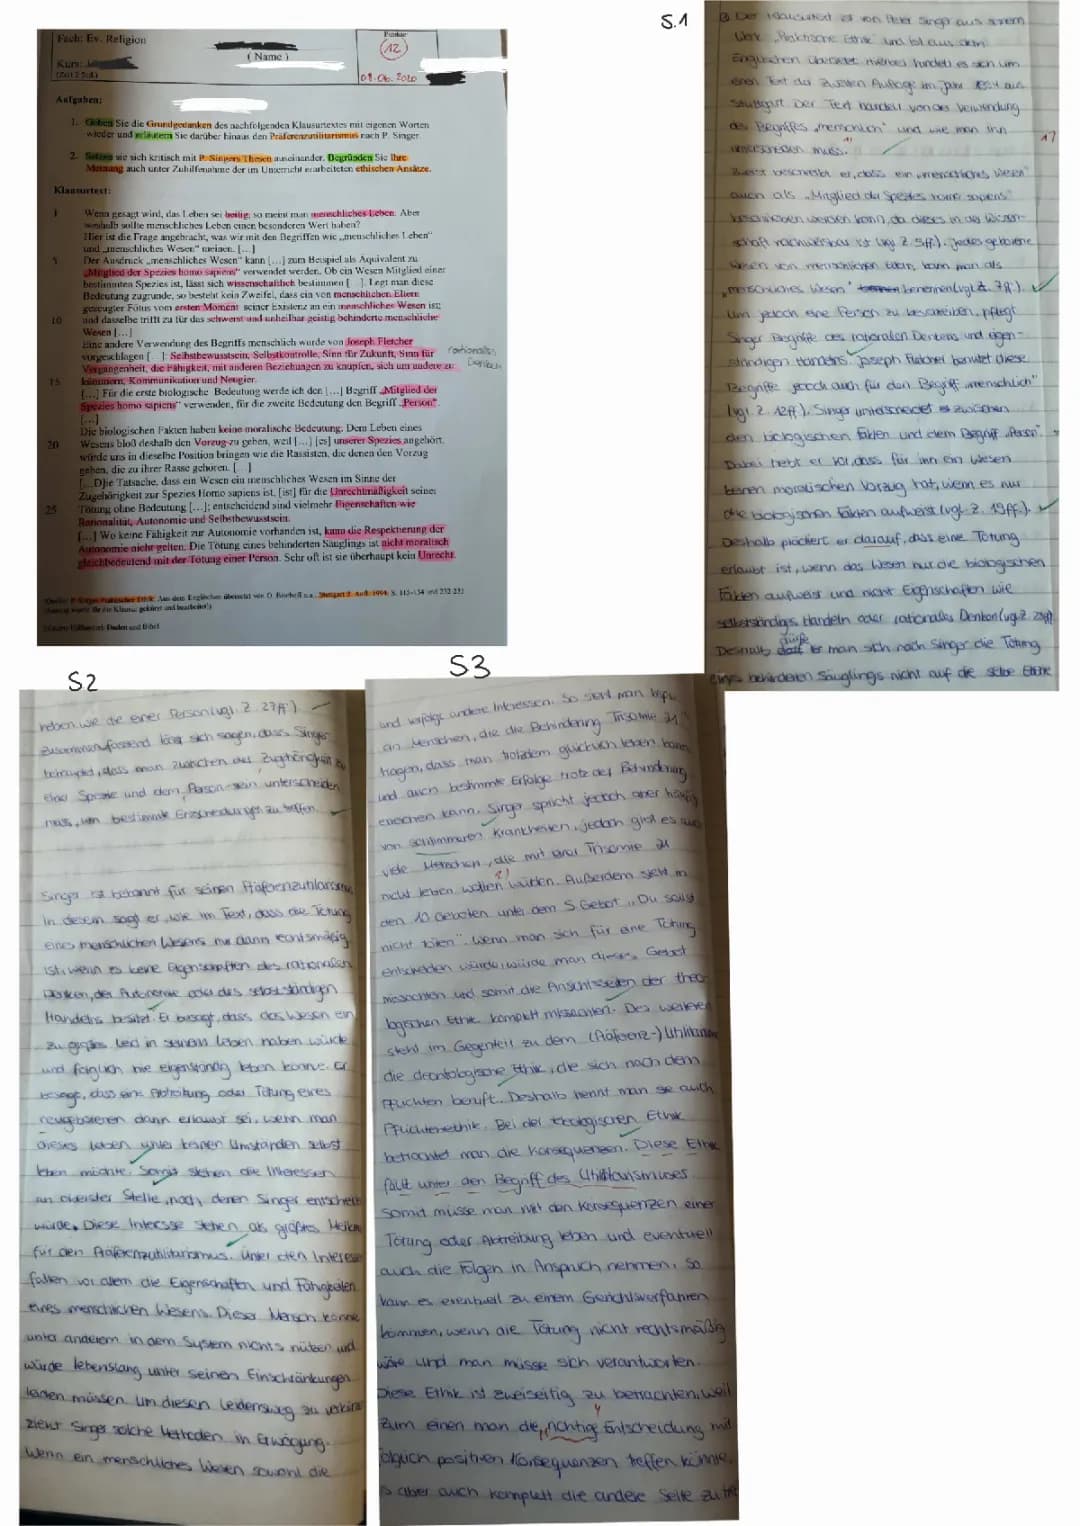 Fach: Ev. Religion
Kurs:
(Name)
Punkte
12
08.06.2020
Aufgaben:
1. Geben Sie die Grundgedanken des nachfolgenden Klausurtextes mit eigenen Worten
wieder und erläutern Sie darüber hinaus den Präferenzutilitarismus nach P. Singer.
2. Setzen sie sich kritisch mit P. Singers Thesen auseinander. Begründen Sie Ihre
Meinung auch unter Zuhilfenahme der im Unterricht erarbeiteten ethischen Ansätze.
Klausurtext:
1 Wenn gesagt wird, das Leben sei heilig, so meint man menschliches Leben. Aber
weshalb sollte menschliches Leben einen besonderen Wert haben?
Hier ist die Frage angebracht, was wir mit den Begriffen wie „menschliches Leben"
und „menschliches Wesen" meinen. [...]
5 Der Ausdruck „menschliches Wesen" kann [...] zum Beispiel als Äquivalent zu
„Mitglied der Spezies homo sapiens" verwendet werden. Ob ein Wesen Mitglied einer
bestimmten Spezies ist, lässt sich wissenschaftlich bestimmen [...]. Legt man diese
Bedeutung zugrunde, so besteht kein Zweifel, dass ein von menschlichen Eltern
gezeugter Fötus vom ersten Moment seiner Existenz an ein menschliches Wesen ist;
10 und dasselbe trifft zu für das schwerst und unheilbar geistig behinderte menschliche
Wesen [...]
Eine andere Verwendung des Begriffs menschlich wurde von Joseph Fletcher
vorgeschlagen [...]: Selbstbewusstsein, Selbstkontrolle, Sinn für Zukunft, Sinn für
Vergangenheit, die Fähigkeit, mit anderen Beziehungen zu knüpfen, sich um andere zu
15 kümmern, Kommunikation und Neugier.
rationales
Denken
[...] Für die erste biologische Bedeutung werde ich den [...] Begriff „Mitglied der
Spezies homo sapiens" verwenden, für die zweite Bedeutung den Begriff „Person".
[...]
Die biologischen Fakten haben keine moralische Bedeutung. Dem Leben eines
20 Wesens bloß deshalb den Vorzug zu geben, weil [...] [es] unserer Spezies angehört,
würde uns in dieselbe Position bringen wie die Rassisten, die denen den Vorzug
geben, die zu ihrer Rasse gehören. [...]
[...D]ie Tatsache, dass ein Wesen ein menschliches Wesen im Sinne der
Zugehörigkeit zur Spezies Homo sapiens ist, [ist] für die Unrechtmäßigkeit seiner
25 Tötung ohne Bedeutung [...]; entscheidend sind vielmehr Eigenschaften wie
Rationalität, Autonomie und Selbstbewusstsein.
[...] Wo keine Fähigkeit zur Autonomie vorhanden ist, kann die Respektierung der
Autonomie nicht gelten. Die Tötung eines behinderten Säuglings ist nicht moralisch
gleichbedeutend mit der Tötung einer Person. Sehr oft ist sie überhaupt kein Unrecht.
S.1
Der Klausurtext ist von Peter Singer aus seinem
Werk „Praktische Ethik" und ist aus dem
Englischen übersetzt. Hierbei handelt es sich um
einen Text der zweiten Auflage im Jahr 1994 aus
Stuttgart. Der Text handelt von der Verwendung
des Begriffes „menschlich" und wie man ihn
unterscheiden muss.
Zuerst beschreibt er, dass ein „menschliches Wesen"
auch als „Mitglied der Spezies homo sapiens"
beschrieben werden kann, da dieses in der Wissen-
schaft nachweisbar ist (vgl. Z. 5ff.). Jedes geborene
Wesen von menschlichen Eltern, kann man als
„menschliches Wesen" benennen (vgl. Z. 7ff.).
Um jedoch eine Person zu beschreiben, pflegt
Singer Begriffe des rationalen Denkens und eigen-
ständigen Handelns. Joseph Fletcher benutzt diese
Begriffe jedoch auch für den Begriff „menschlich"
(vgl. Z. 12ff.). Singer unterscheidet es zwischen
den biologischen Fakten und dem Begriff „Person".
Dabei hebt er vor, dass für ihn ein Wesen
keinen moralischen Vorzug hat, wenn es nur
die biologischen Fakten aufweist (vgl. Z. 19ff.).
Deshalb plädiert er darauf, dass eine Tötung
erlaubt ist, wenn das Wesen nur die biologischen
Fakten aufweist und nicht Eigenschaften wie
selbstständiges Handeln oder rationales Denken (vgl. Z. 23ff.).
Deshalb dürfe man sich nach Singer die Tötung
eines behinderten Säuglings nicht auf die selbe Ethik
S2
heben wie die einer Person (vgl. Z. 27ff.)
Zusammenfassend lässt sich sagen, dass Singer
behauptet, dass man zwischen der Zugehörigkeit zu
einer Spezies und dem Person-sein unterscheiden
muss, um bestimmte Entscheidungen zu treffen.
Singer ist bekannt für seinen Präferenzutilitarismus
In diesem sagt er, wie im Text, dass die Tötung
eines menschlichen Wesens nur dann rechtsmäßig
ist, wenn es keine Eigenschaften des rationalen
Denken, der Autonomie oder des selbstständigen
Handelns besitzt. Er besagt, dass das Wesen ein
zu großes Leid in seinem Leben haben würde
und folglich nie eigenständig leben könne. Er
besagt, dass eine Abtreibung oder Tötung eines
neugeborenen dann erlaubt sei, wenn man
dieses Leben unter keinen Umständen selbst
leben möchte. Somit stehen die Interessen
an oberster Stelle, nach denen Singer entscheiden
würde. Diese Interesse stehen als größtes
für den Präferenzutilitarismus. Unter den Interessen
fallen vor allem die Eigenschaften und Fähigkeiten
eines menschlichen Wesens. Dieser Mensch könne
unter anderem in dem System nichts nützen und
würde lebenslang unter seinen Einschränkungen
leiden müssen. Um diesen Leidensweg zu verkürzen
zieht Singer solche Methoden in Erwägung.
Wenn ein menschliches Wesen sowohl die
S3
und verfolge andere Interessen. So sieht man bspw.
an Menschen, die die Behinderung Trisomie 21
tragen, dass man trotzdem glücklich leben kann
und auch bestimmte Erfolge trotz der Behinderung
erreichen kann. Singer spricht jedoch aber häufig
von schlimmeren Krankheiten, jedoch gibt es auch
viele Menschen, die mit einer Trisomie 21
nicht leben wollen würden. Außerdem steht in
den 10 Geboten unter dem 5. Gebot „Du sollst
nicht töten". Wenn man sich für eine Tötung
entscheiden würde, würde man dieses Gebot
missachten und somit die Ansichtsseiten der theo-
logischen Ethik komplett missachten. Des weiteren
steht im Gegenteil zu dem (Präferenz-) Utilitarismus
die deontologische Ethik, die sich nach dem
Pflichten beruft. Deshalb nennt man sie auch
Pflichtenethik. Bei der teologischen Ethik
betrachtet man die Konsequenzen. Diese Ethik
fällt unter den Begriff des Utilitarismuses.
Somit müsse man mit den Konsequenzen einer
Tötung oder Abtreibung leben und eventuell
auch die Folgen in Anspruch nehmen. So
kann es eventuell zu einem Gerichtsverfahren
kommen, wenn die Tötung nicht rechtsmäßig
wäre und man müsse sich verantworten.
Diese Ethik ist zweiseitig zu betrachten, weil
zum einen man die „richtige" Entscheidung mit
folglich positiven Konsequenzen treffen könnte,
es aber auch komplett die andere Seite